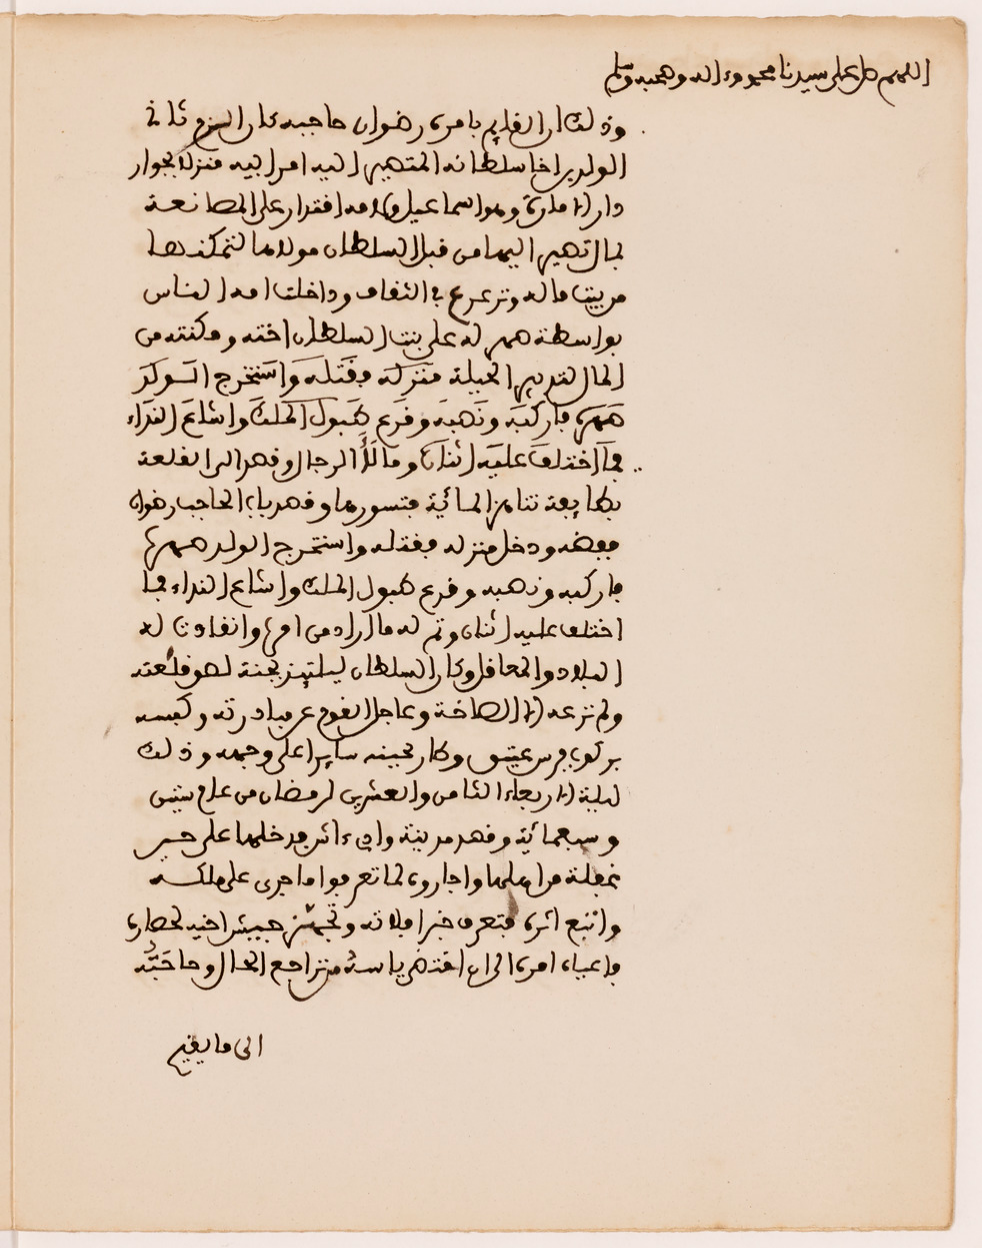 اللهم صل على سيدنا محمد وءاله وصحبه وسلم
وذلك ان القايم بامره رضوان حاجبه كان انزع ثاني
الولدين اخا سلطانه المتصير اليه امر ابيه منزلا بجوار
دار الامارة وهو اسماعيل ولامه اقتدار على المصانعة
لمال تصير اليها من قبل السلطان مولاها لتمكنها
من بيت ماله وترعرع في الثقاف وداخلت امه الناس
بواسطة صهر له على بنت السلطان اخته ومكنته من
المال لتدبير الحيلة منزله فقتله واستخرج الولد
صهره فاركبه ونهبه وقرع طبول الملك واشاع النداء
فما اختلف عليه اثنان ومالأ الرجال وقصد الى القلعة
بطايفة تناهز المائية فتسورها وقصد باب الحاجب رضوان
ففضه ودخل منزله فقتله واستخرج الولد صهره
فاركبه ونهبه وقرع طبول الملك واشاع النداء فما
اختلف عليه اثنان وتم له ما اراد من امره وانقادت له
البلاد والمعاقل وكان السلطان ليلتئذ بجنة لصو قلعته
ولم ترعه الا الصاخة وعاجل القوم عن مبادرته وكبسه
بركوب فرس عتيق وكان محينه سايرا على وجهه وذلك
ليلة الاربعاء الثامن والعشرين لرمضان من عام ستين
وسبعمائية وقصد مدينة وادي ءاش فدخلها على حين
غفلة من اهلها واجاروه لما تعرفوا ما جرى على ملكه
واتبع اثره فتعرف خبر افلاته وتجهز جيش اخيه لحصاره
فاعياه امره الى ان اقتضى ياسه من تراجع الحال وصاحبه
الى ما يقيم